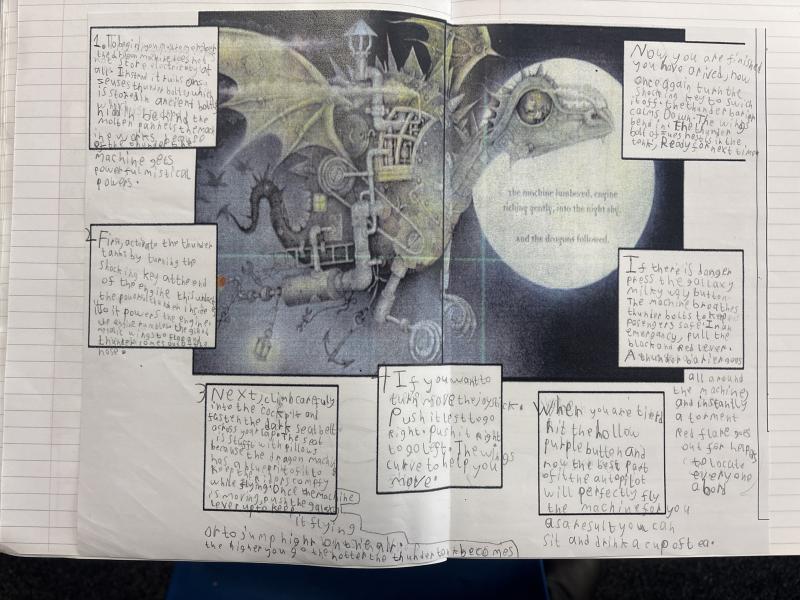 1. To begin you must remember
the dragon machine does not
not store electricity at
all. Instead it runs on
senses thunder bolts which
is stored in ancient bolts
hidden behind the
molten pannels the mach
ine works because
of the thunder the
machine gets
powerful mistical
powers.
2 First, activate the thunder
tanks by turning the
shocking key at the end
of the engine this unlocks
the powerful token inside
so it powers the engine.
thunder comes out of the
nose.
3 Next, climb carefully
into the cockpit and
fasten the dark seatbelt
across your lap. The seat
is stuffed with pillows
because the dragon machine
has a blueprint of it to
keep the riders comfy
while flying. Once the machine
is moving, push the galaxy
lever up to keep
it flying
or to jump high on the air.
the higher you go the hotter the thunder tank becomes
4 If you want to
turn move the joystick.
Push it lest to go
Right. Push it Right
to go left. The wings
curve to help you
move.
When you are tierd
hit the hollow
purple button and
now the best part
of it the autopilot
will perfectly fly
the machine for you
as a result you can
sit and drink a cup of tea.
If there is danger
press the gallaxy
milky way button.
The machine breathes
thunder bolts to keep
pasengers safe. In an
emergancy, pull the
black and Red lever.
A thunder barier goes
all around
the machine
and instantly
a torment
Red flare goes
out for helpers
to locate
everyone
abord
Now you are finished
you have arived, now
once again turn the
shocking key to swich
it off. the thunder barrier
calms Down. The wings
bend in. The thunder
tank, Ready for next time
The machine lumbered, engine
ticking gently, into the night sky.
And the dragons followed.